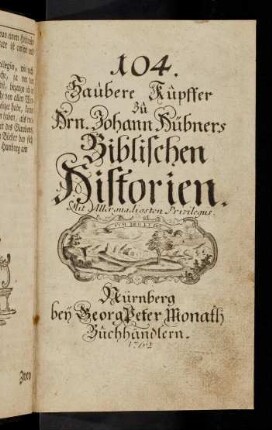 104.
Saubere Kupffer
zu
Hrn. Johann Hübners
Biblischen
Historien.
Mit Allergnädigsten Privilegiis.
Nürnberg
bey Georg Peter Monath
Buchhändlern.